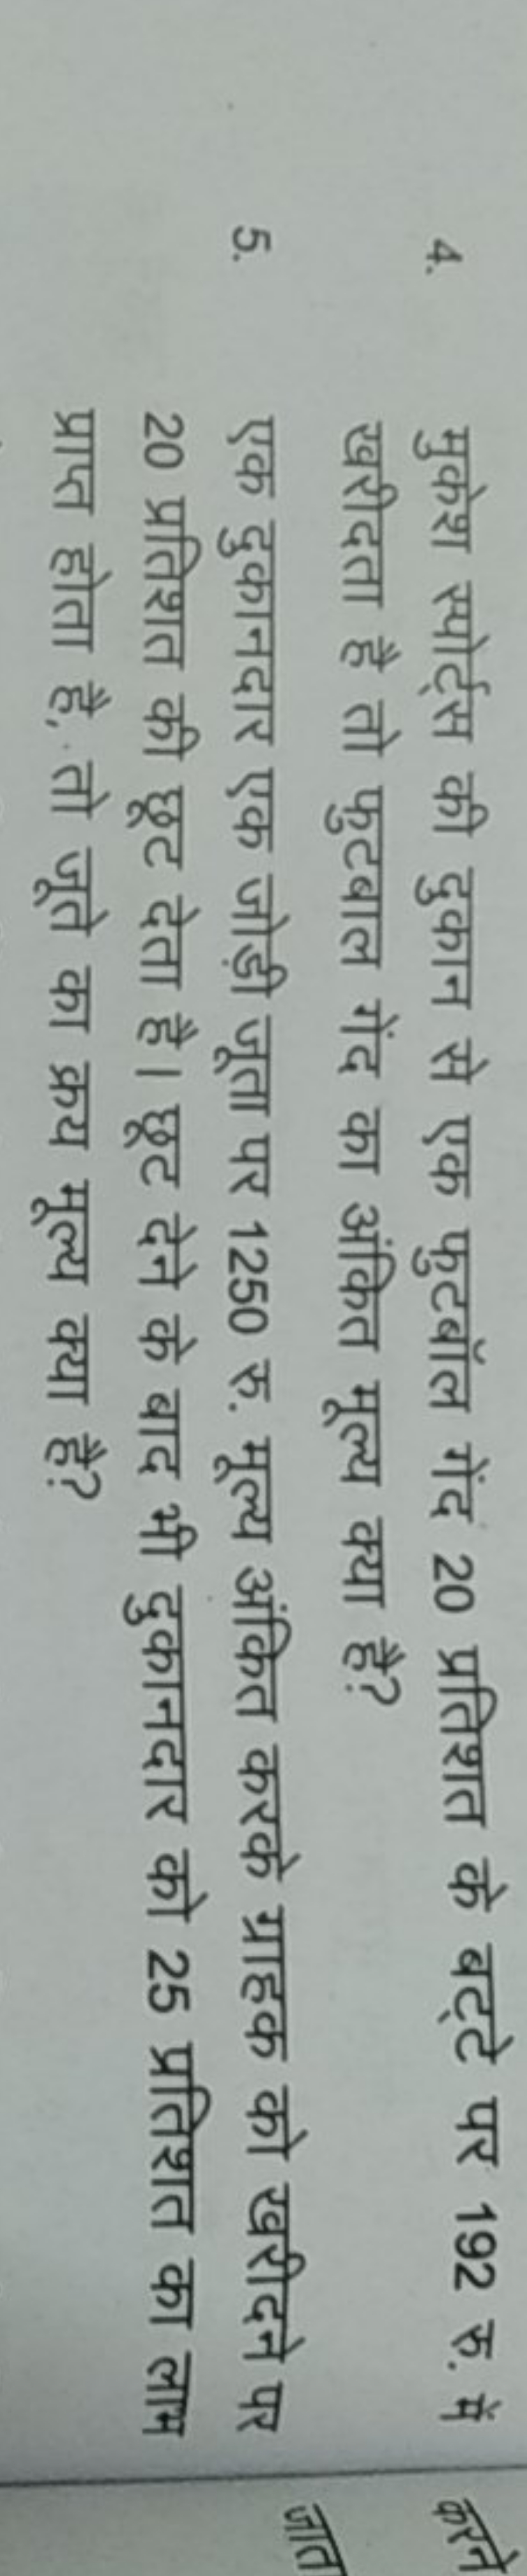 4. मुकेश स्पोर्ट्स की दुकान से एक फुटबॉल गेंद 20 प्रतिशत के बट्टे पर 192 रु. में
खरीदता है तो फुटबाल गेंद का अंकित मूल्य क्या है?
5. एक दुकानदार एक जोड़ी जूता पर 1250 रु. मूल्य अंकित करके ग्राहक को खरीदने पर
20 प्रतिशत की छूट देता है। छूट देने के बाद भी दुकानदार को 25 प्रतिशत का लाभ
प्राप्त होता है, तो जूते का क्रय मूल्य क्या है?
करने
जाता